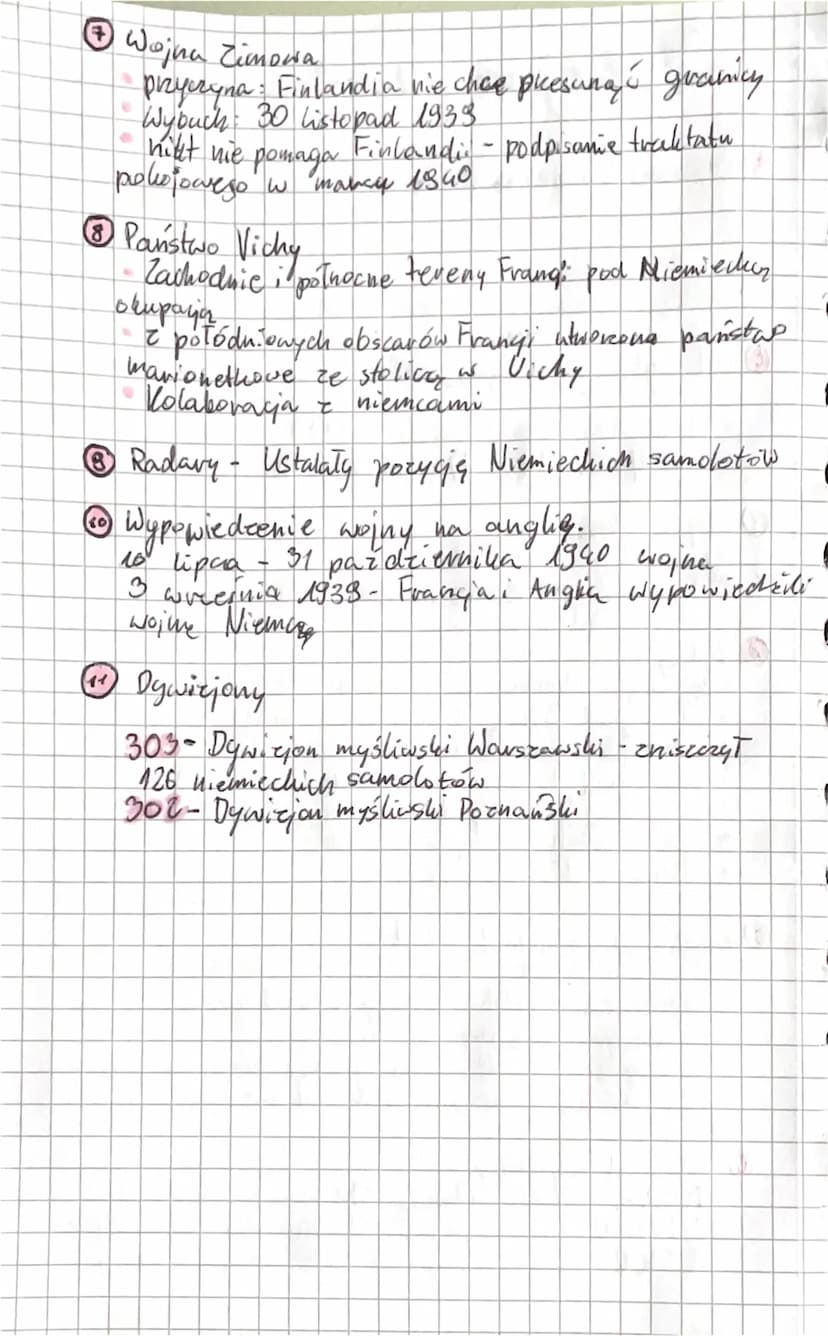 7 Wojna Zimowa
przyczyna: Finlandia nie chce przesunąć granicy
Wybuch: 30 listopad 1939
nikt nie pomaga Finlandii - podpisanie traktatu
pokojowego w marcu 1940
8 Państwo Vichy
Zachodnie i północne tereny Francji pod Niemiecką
okupacją
z połódniowych obszarów Francji utworzona państwo
marionetkowe ze stolicą w Vichy
Kolaboracja z niemcami
9 Radary - Ustalały pozycję Niemieckich samolotów
10 Wypowiedzenie wojny na anglię.
10 lipca - 31 października 1940 wojna
3 września 1939 - Francja i Anglia wypowiedzili
wojnę
11 Dywizjony
303 - Dywizjon myśliwski Warszawski - zniszczył
126 niemieckich samolotów
302 - Dywizjon myśliwski Poznański